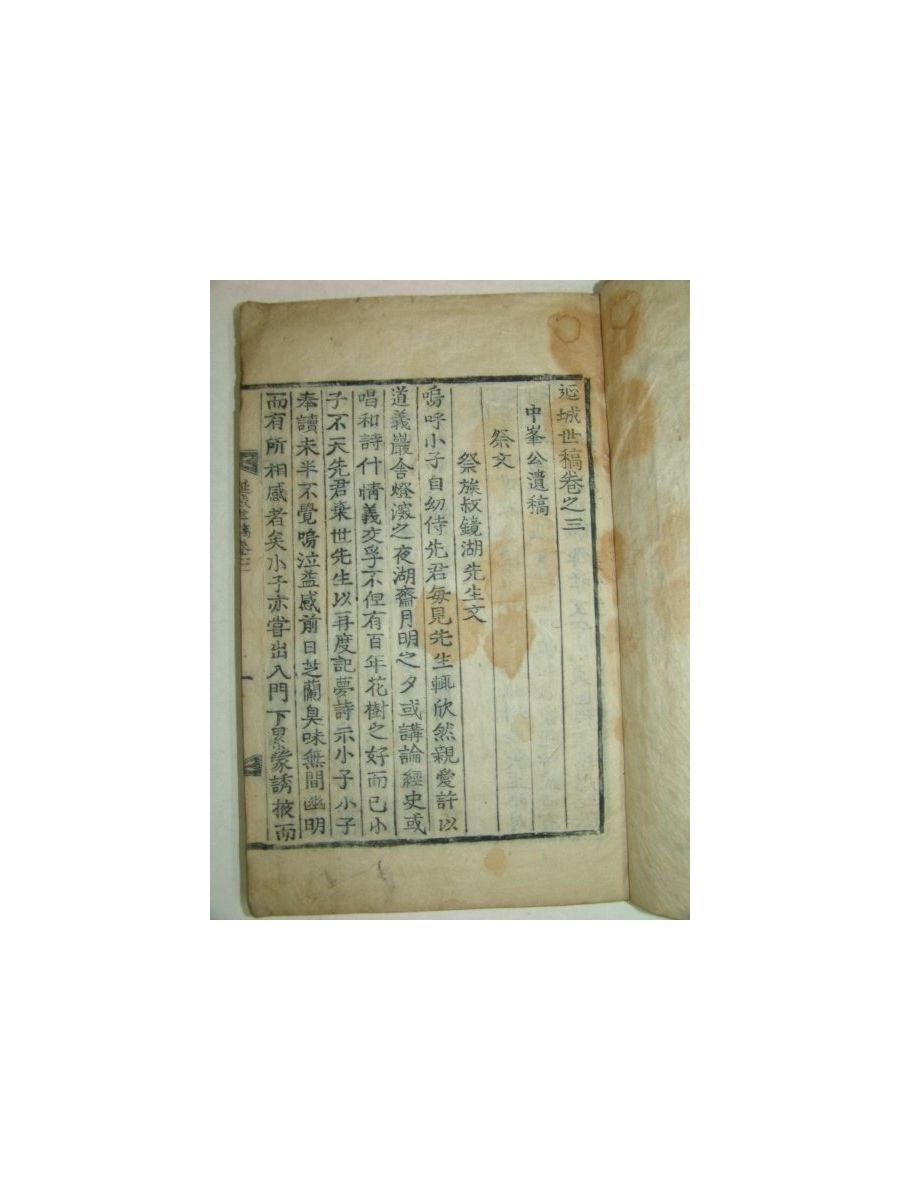 延城世稿卷之三
中峯公遺稿
祭文
祭族叔鏡湖先生文
嗚呼小子自幼侍先君每見先生輒欣然親愛許以
道義巖舍燈深之夜湖齋月明之夕或講論經史或
唱和詩什情義交孚不但有百年花樹之好而已小
子不天先君棄世先生以再度記夢詩示小子小子
奉讀未半不覺嗚泣益感前日芝蘭臭味無間幽明
而有所相感者矣小子亦嘗出入門下累蒙誘掖而
延城世稿卷三
一